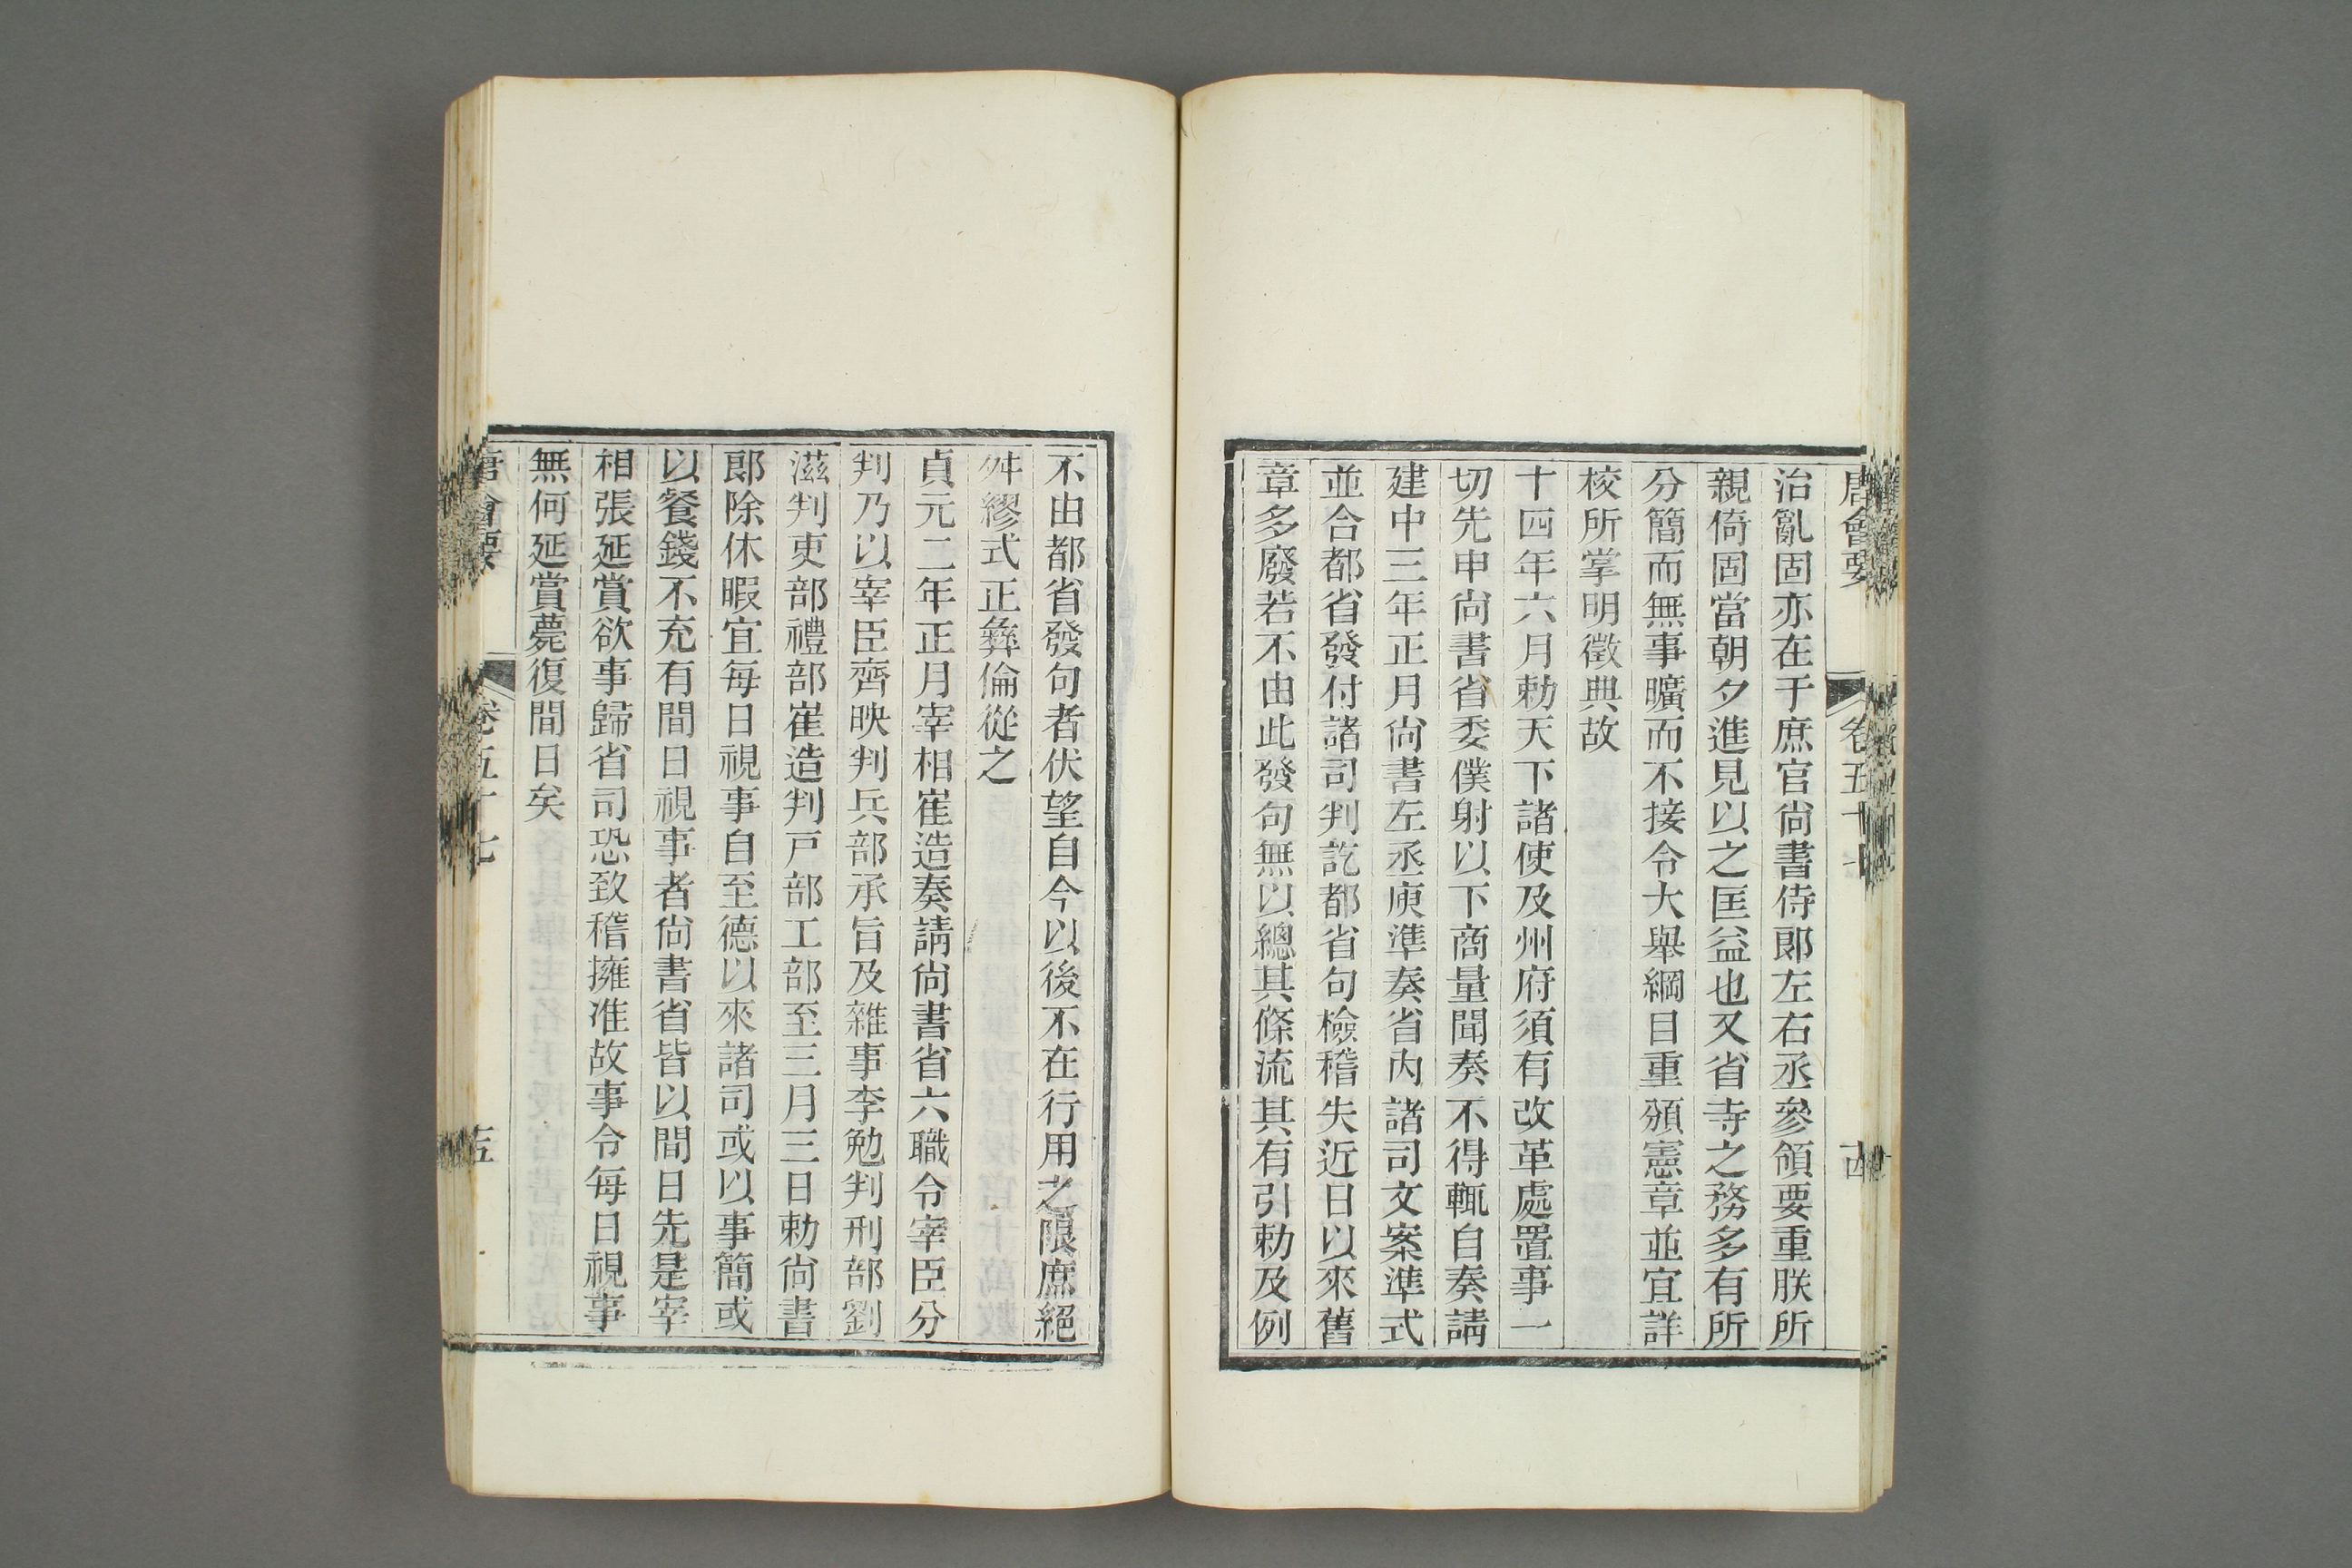 唐會要 卷五十七 古
治亂固亦在于庶官尚書侍郎左右丞參領要重朕所
親倚固當朝夕進見以之匡益也又省寺之務多有所
分簡而無事曠而不接令大舉綱目重頒憲章並宜詳
校所掌明徵典故
十四年六月勅天下諸使及州府須有改革處置事一
切先申尚書省委僕射以下商量聞奏不得輒自奏請
建中三年正月尚書左丞庾準奏省內諸司文案準式
並合都省發付諸司判訖都省句檢稽失近日以來舊
章多廢若不由此發句無以總其條流其有引勅及例
不由都省發句者伏望自今以後不在行用之限庶絕
舛繆式正彝倫從之
貞元二年正月宰相崔造奏請尚書省六職令宰臣分
判乃以宰臣齊映判兵部承旨及雜事李勉判刑部劉
滋判吏部禮部崔造判戸部工部至三月三日勅尚書
郎除休暇宜每日視事自至德以來諸司或以事簡或
以餐錢不充有間日視事者尚書省皆以間日先是宰
相張延賞欲事歸省司恐致稽擁准故事令每日視事
無何延賞薨復間日矣
唐會要 卷五十七 五